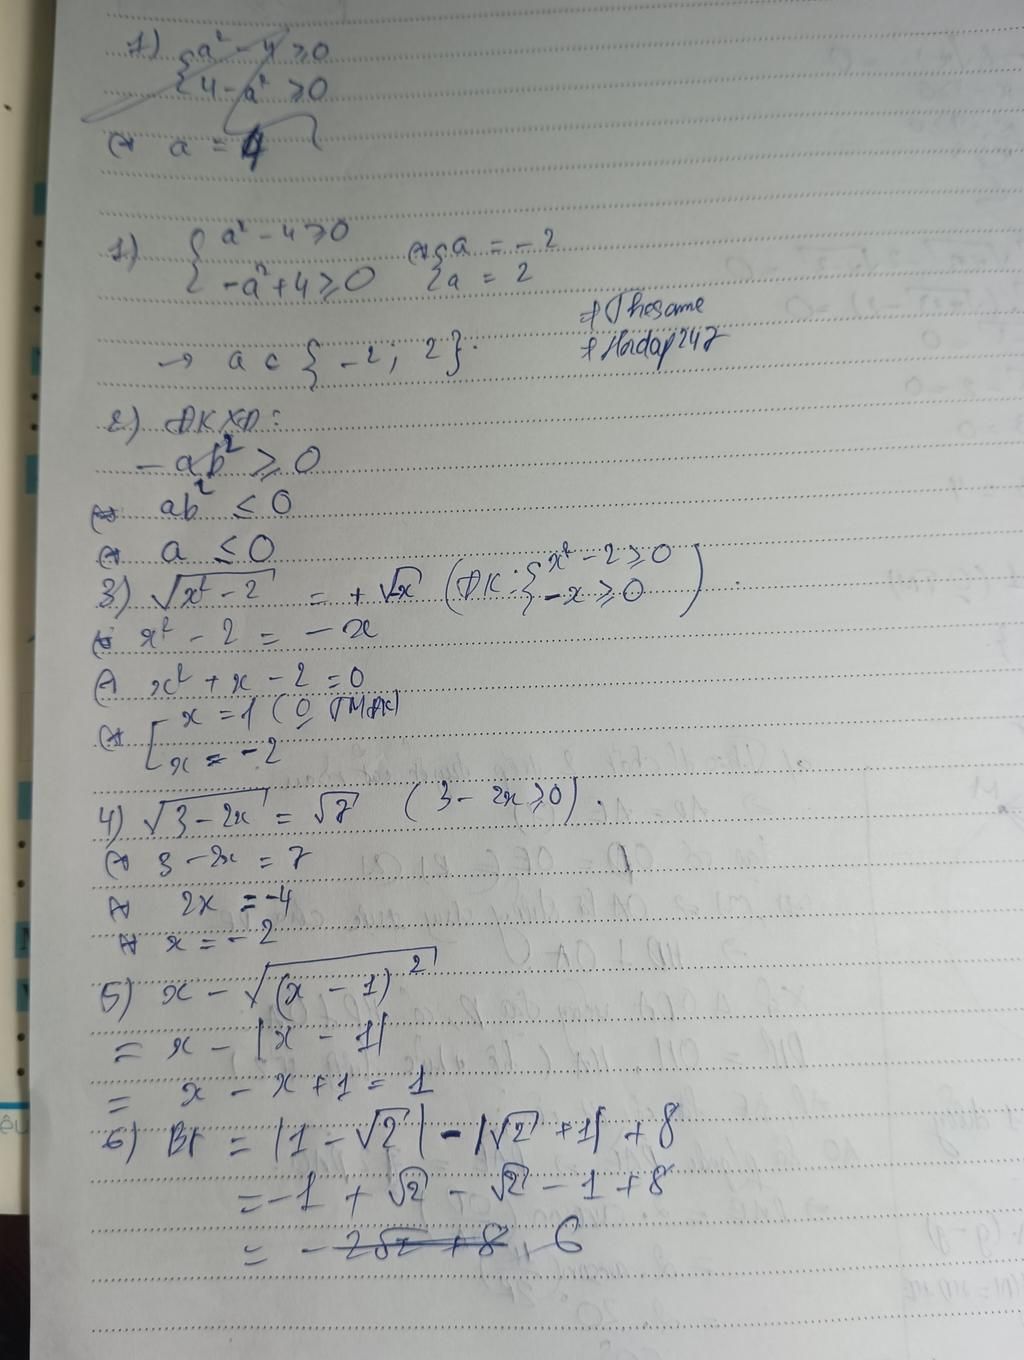 1) { a² - 4 ≥ 0
4 - a² ≥ 0
⇔ a = 4
1) { a² - 4 ≥ 0 ⇔ { a = - 2
-a² + 4 ≥ 0 a = 2
→ a ∈ { -2 ; 2 }.
+ Thesame
+ Hoidap247
2) ĐKXĐ :
- ab² ≥ 0
⇔ ab² ≤ 0
⇔ a ≤ 0
3) √(x² - 2) = + √-x (ĐK : { x² - 2 ≥ 0
- x ≥ 0 ) .
⇔ x² - 2 = - x
⇔ x² + x - 2 = 0
⇔ [ x = 1 (0 TMĐK)
x = - 2
4) √(3 - 2x) = √7 (3 - 2x ≥ 0) .
⇔ 3 - 2x = 7
⇔ 2x = -4
⇔ x = - 2
5) x - √(x - 1)²
= x - |x - 1|
= x - x + 1 = 1
6) BT = |1 - √2| - |√2 + 1| + 8
= -1 + √2 - √2 - 1 + 8
= - 2√2 + 8 6